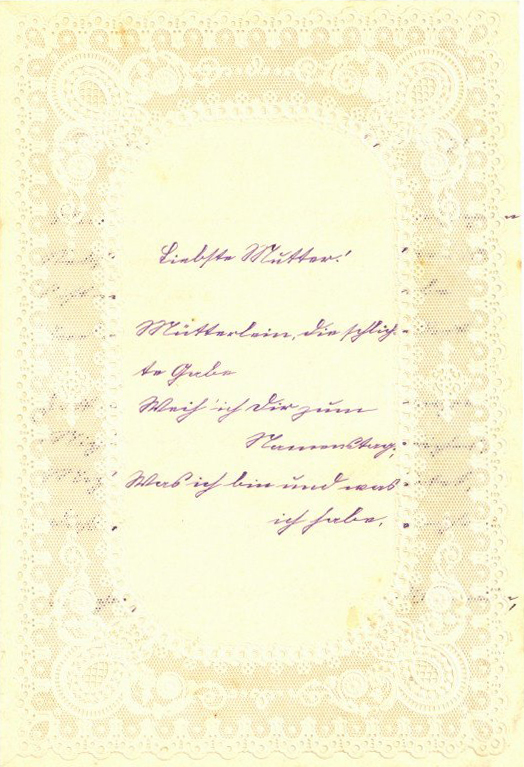 Liebste Mutter!
Mütterlein, die schlich-
te Gabe
Weih' ich Dir zum
Namenstag;
Was ich bin und was
ich habe,